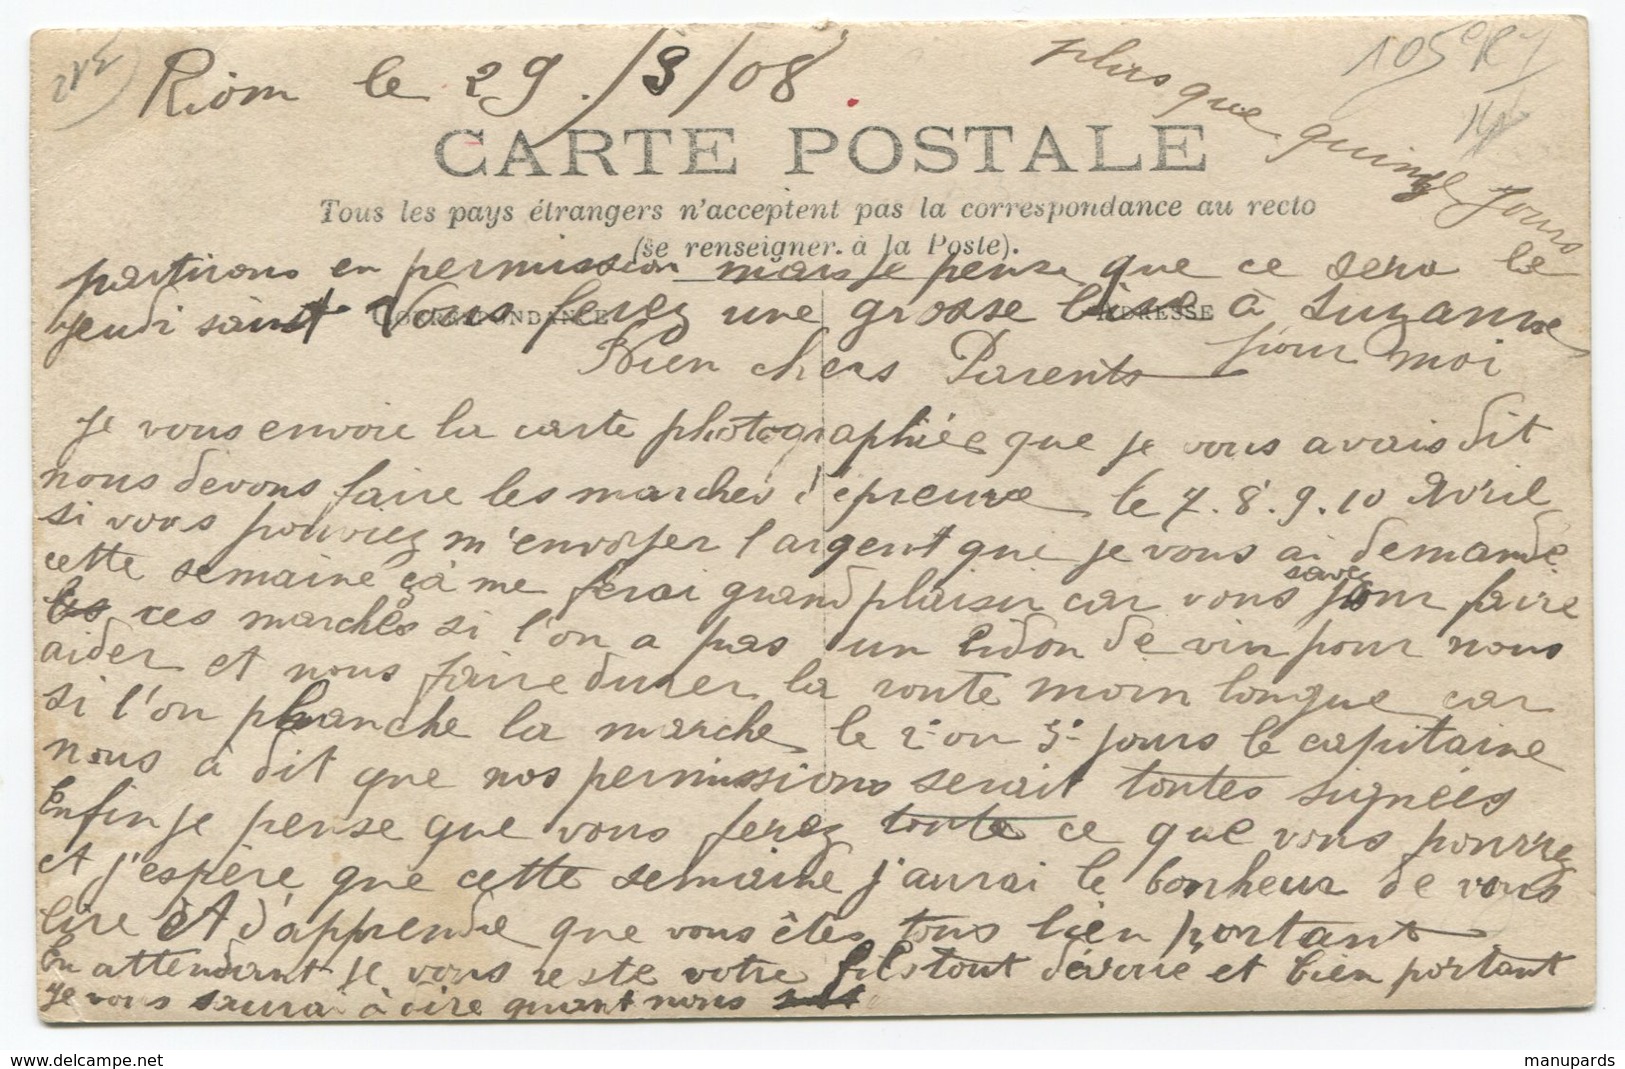 Riom le 29/3/08
plus que quinze jours
105e R I
CARTE POSTALE
Tous les pays étrangers n'acceptent pas la correspondance au recto
(se renseigner à la Poste).
partirons en permission mais je pense que ce sera le
jeudi saint Vous ferez une grosse bise à Suzanne
pour moi
CORRESPONDANCE
ADRESSE
Bien chers Parents
Je vous envoie la carte photographiée que je vous avais dit
nous devons faire les marches d'épreuve le 7. 8. 9. 10 Avril
si vous pouviez m'envoyer l'argent que je vous ai demandé
cette semaine çà me ferai grand plaisir car vous savez pour faire
les ces marches si l'on a pas un bidon de vin pour nous
aider et nous faire durer la route moin longue car
si l'on planche la marche le 2e ou 3e jours le capitaine
nous à dit que nos permissions serait toutes signées
Enfin je pense que vous ferez toute ce que vous pourrez
et j'espère que cette semaine j'aurai le bonheur de vous
lire et d'apprendre que vous êtes tous bien portant
En attendant je vous reste votre fils tout dévoué et bien portant
Je vous saurai à dire quant nous
manupards